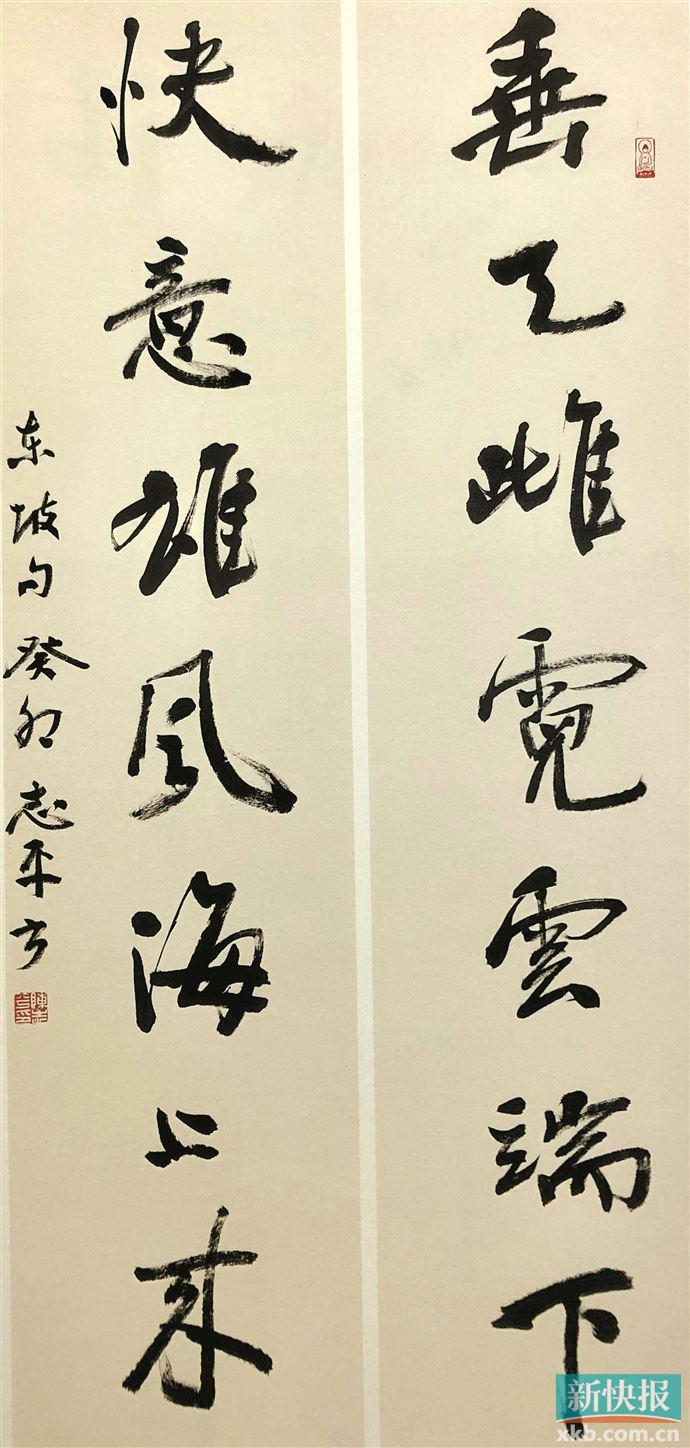 垂天雌霓雲端下
快意雄風海上来
东坡句 癸卯 志平书
新快报
xkb.com.cn